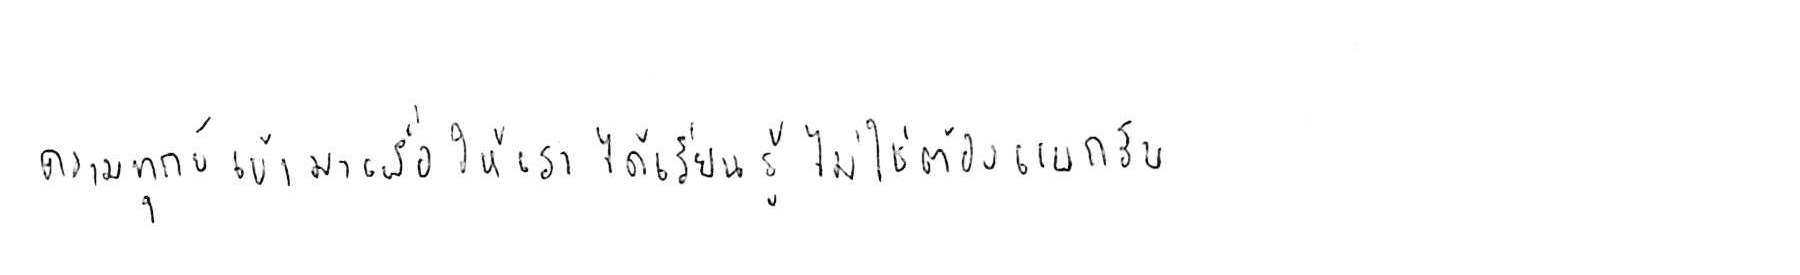 ความทุกข์เข้ามาเพื่อให้เราได้เรียนรู้ไม่ใช่ต้องแบกรับ